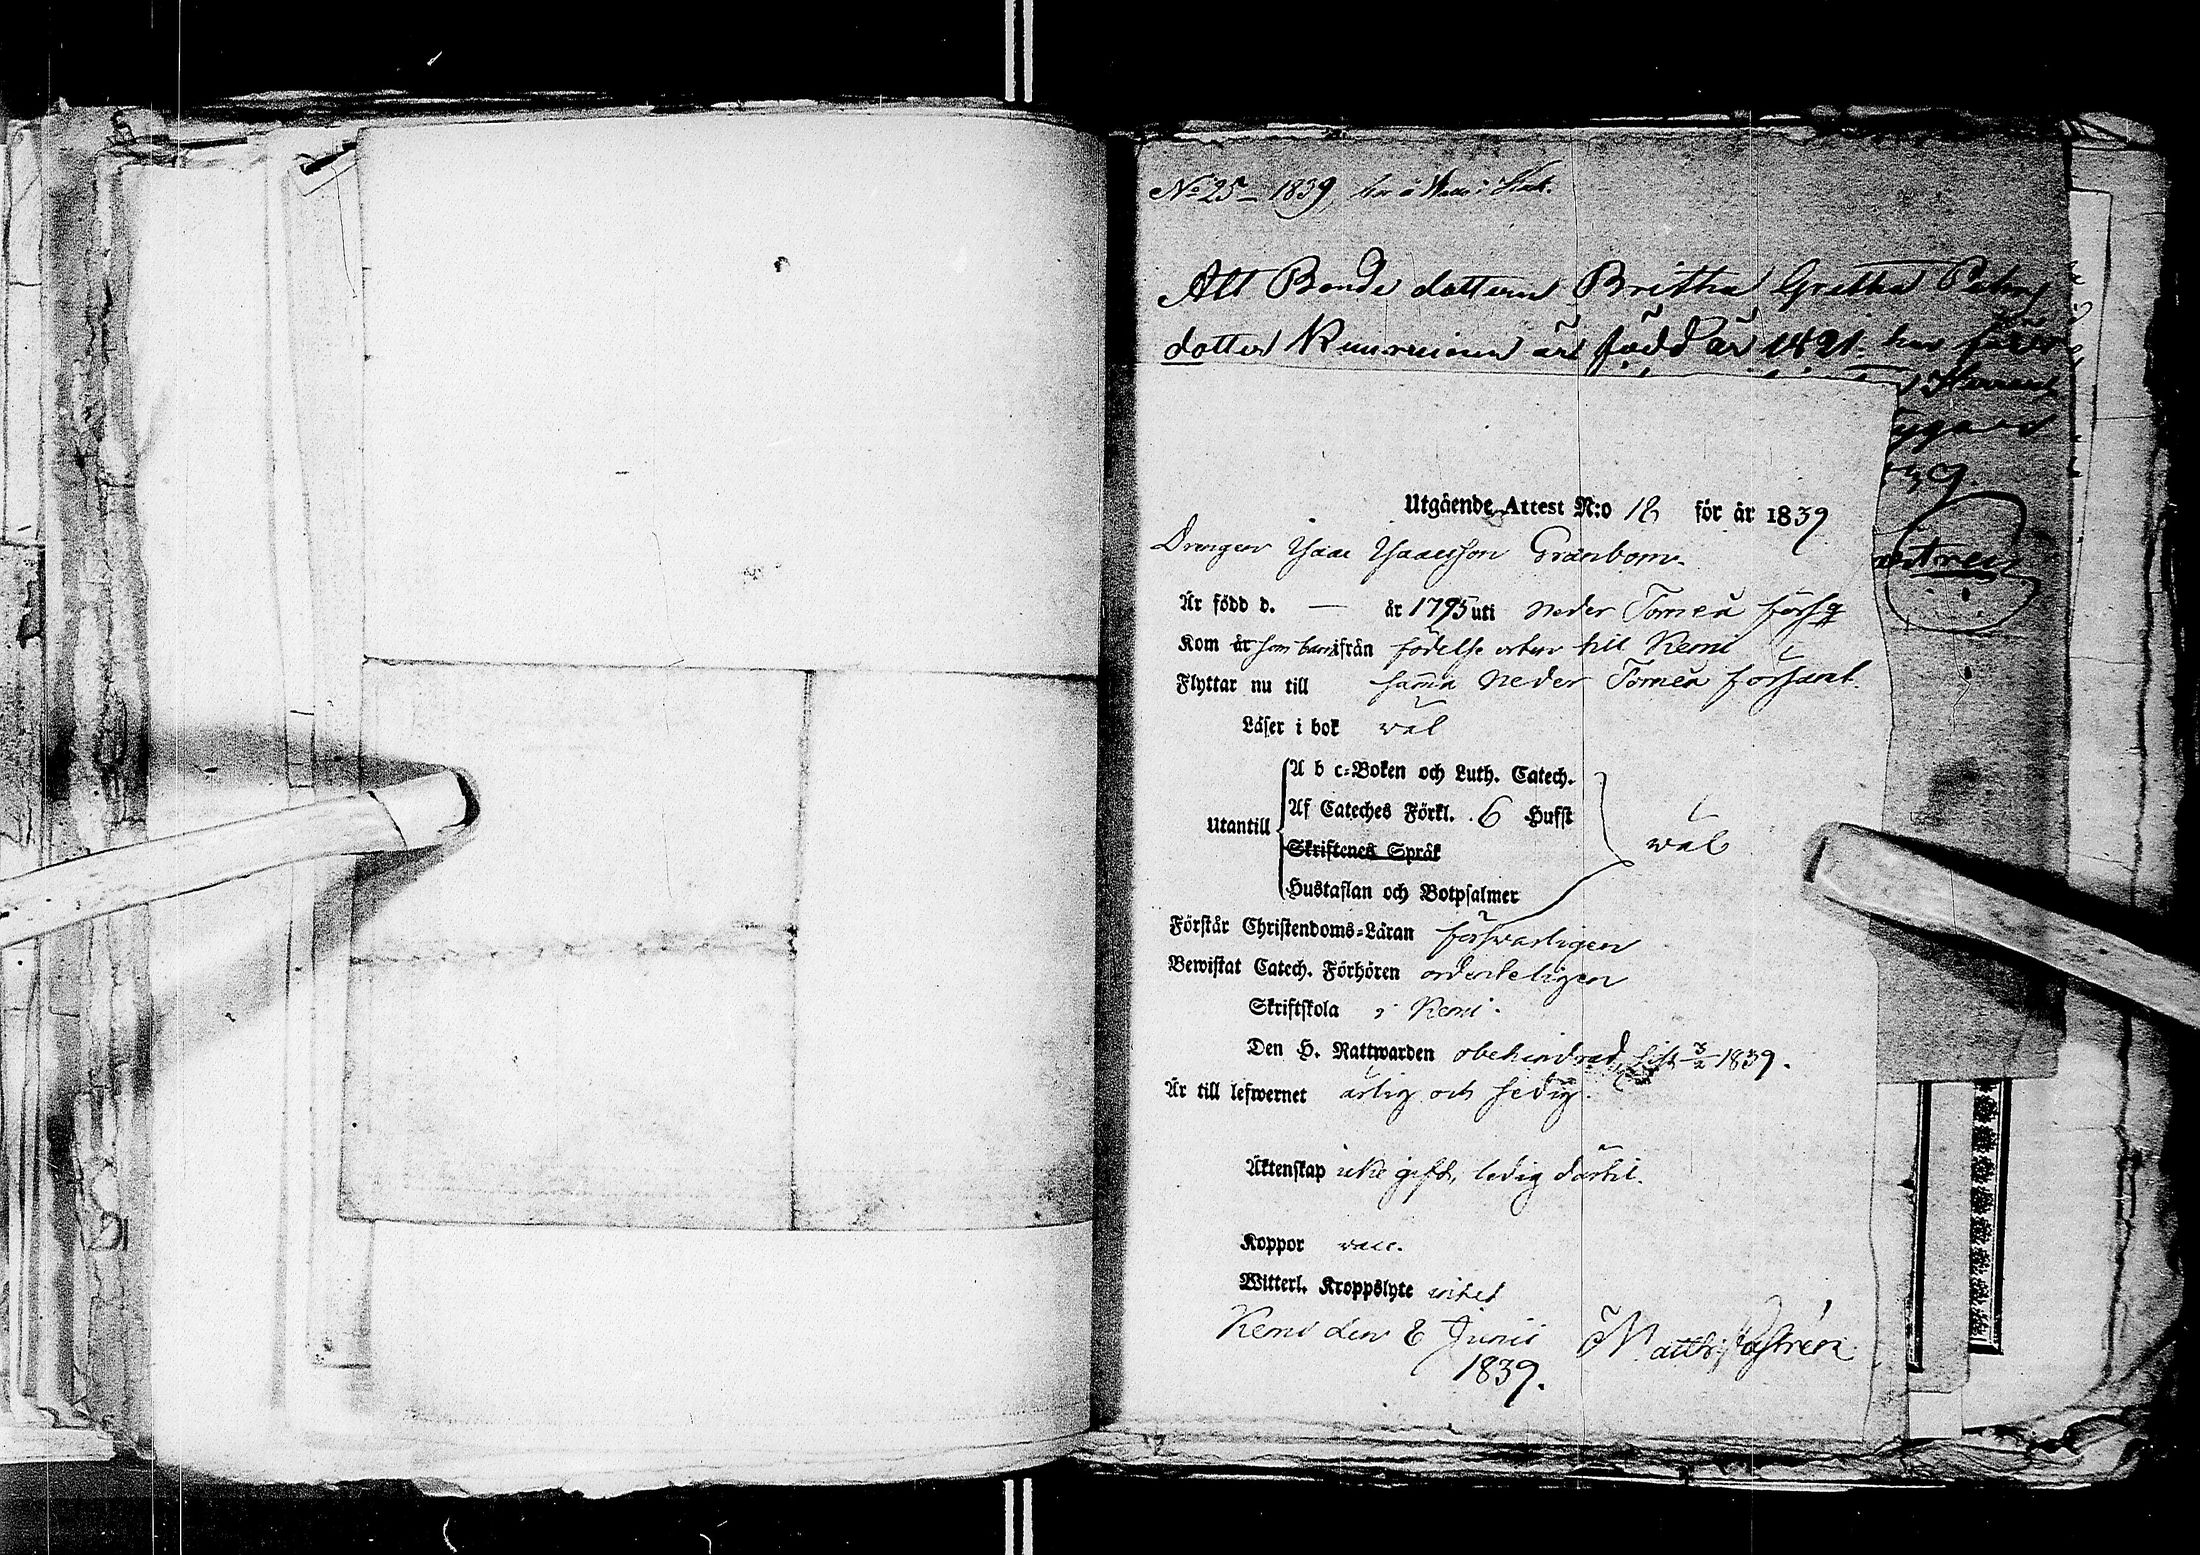 No 25 1839
Att Bonde dottern Britha Gretha Peters
dotter är född år 1821 har
Utgående Attest N:o 18 för år 1839
Drengen Isaac Isaacsson Granbom.
Är född d. — år 1795 uti Neder Torneå förs
Kom år som barn ifrån födelse orten till Kemi
Flyttar nu till samma Neder Torneå församl.
Läser i bok väl
A b c=Boken och Luth. Catech.
Af Cateches Förkl. 6 Hufst
Utantill
väl
Skriftenes Språk
Hustaflan och Botpsalmer
Förstår Christendoms=Läran försvarligen
Bewistat Catech. Förhören ordenteligen
Skriftskola i Kemi.
Den H. Nattwarden obehindrad, sist 3/2 1839.
Är till lefwernet ärlig och sedig.
Äktenskap icke gift, ledig därtil.
Koppor
Witterl. Kroppslyte intet
Kemi den 8 Junii
1839.
Matth. Castrén